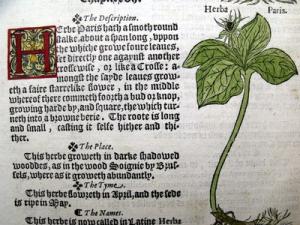 The Description.
Herba Paris.
HErbe Paris hath a smoth round
stalke about a span long, vppon
the whiche growe foure leaues,
set directly one against another
crossewise, oz like a Crosse: a-
mongst the sayde leaues grow-
eth a faire starrelike flower, in the midde
whereof there commeth foorth a bud oz knop,
growing harde by, and square, the which tur-
neth into a browne berie. The roote is long
and small, casting it selfe hither and thi-
ther.
The Place.
This herbe groweth in darke shadowed
wooddes, as in the wood Soignie by Brus-
sels, where as it groweth abundantly.
The Tyme.
This herbe flowreth in Aprill, and the seede
is ripe in May.
The Names.
This herbe is now called in Latine Herba